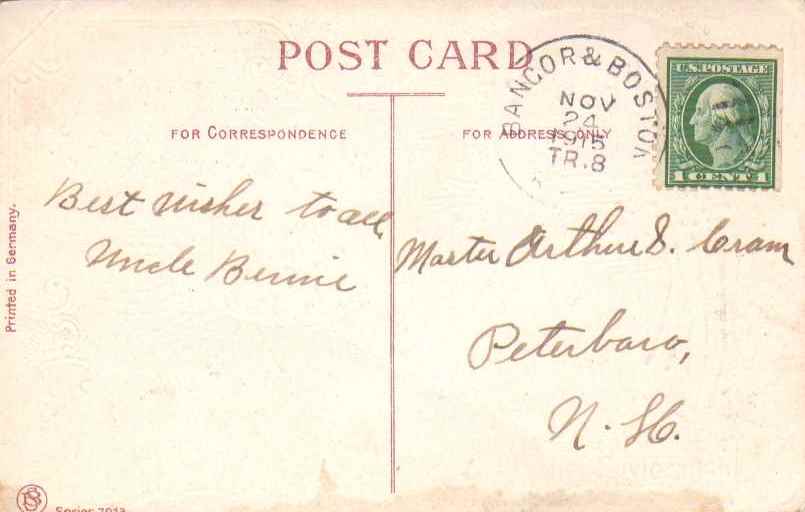 POST CARD
FOR CORRESPONDENCE
FOR ADDRESS ONLY
BANGOR & BOSTON
NOV
24
1915
TR.8
U.S. POSTAGE
1 CENT 1
Best wishes to all,
Uncle Bernie
Master Arthur S. Cram
Peterboro,
N. H.
Printed in Germany.
Series 7013